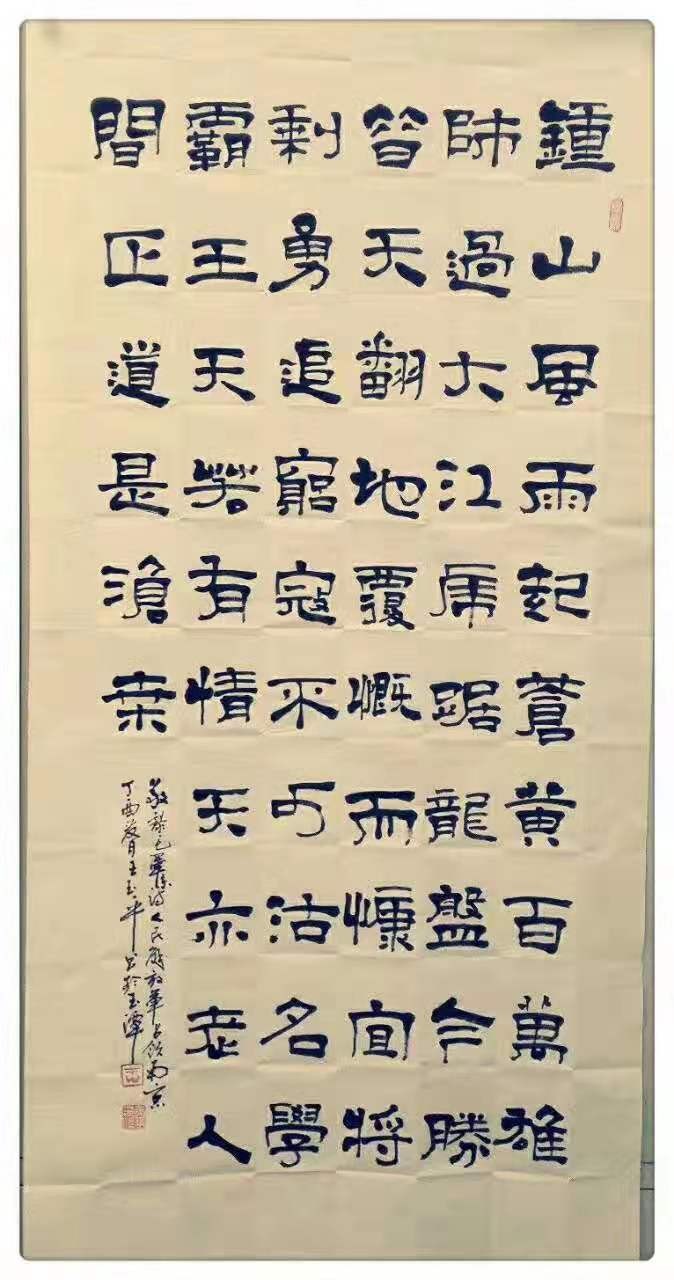 鍾山風雨起蒼黄百萬雄
師過大江虎踞龍盤今勝
昔天翻地覆慨而慷宜將
剩勇追窮寇不可沽名學
霸王天若有情天亦老人
間正道是滄桑
敬録毛澤东诗人民解放軍占领南京
丁酉春月王玉平书於玉潭